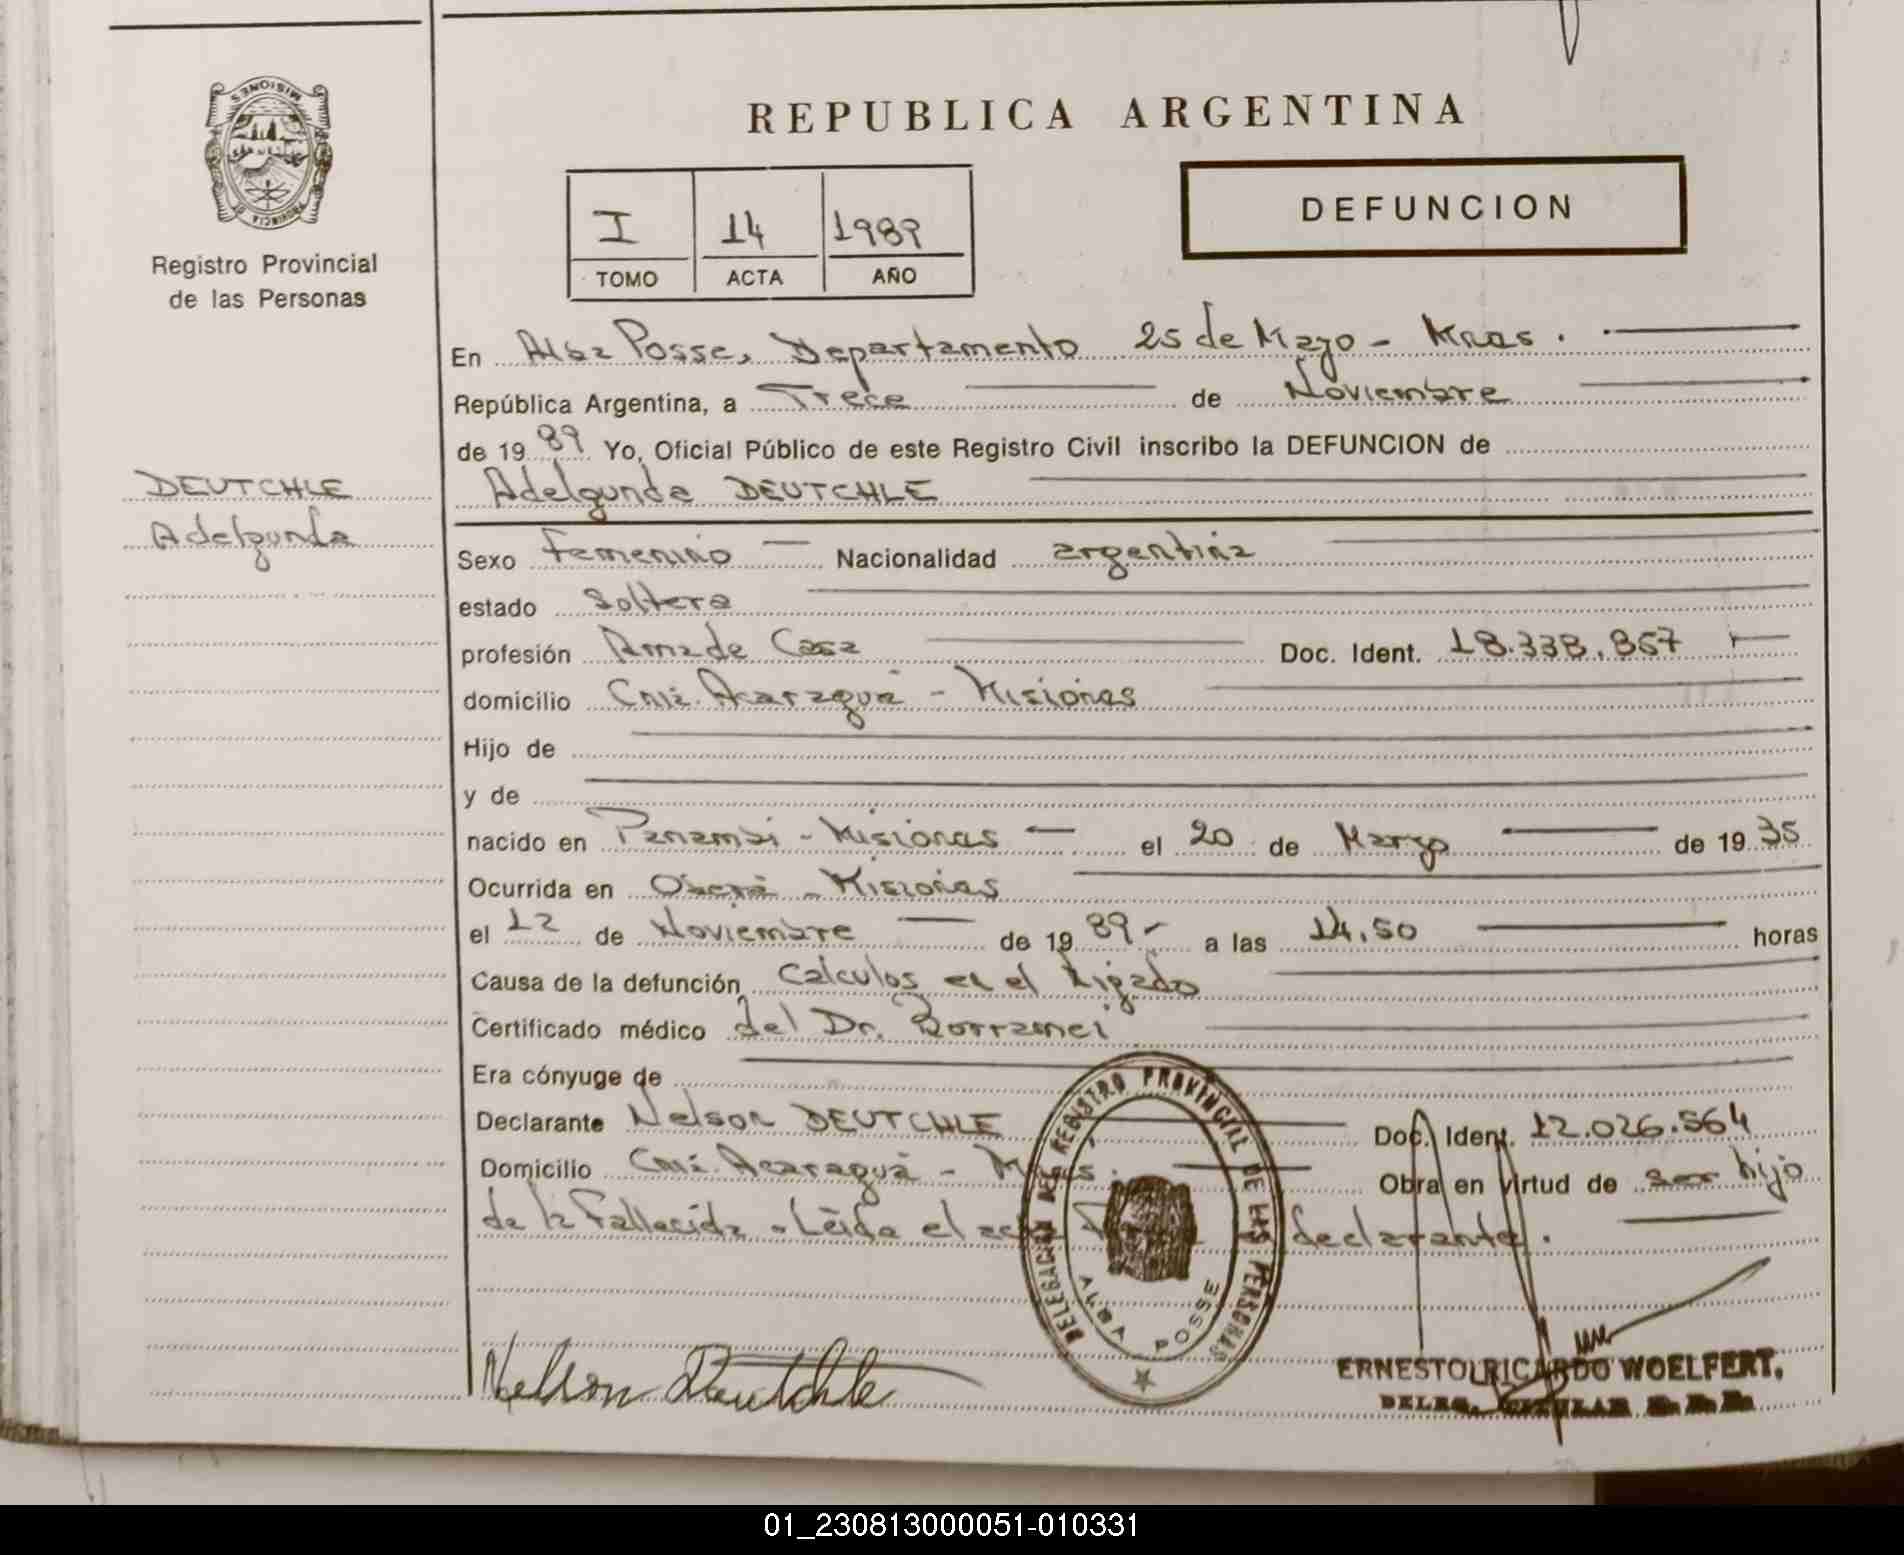 PROVINCIA DE MISIONES
Registro Provincial
de las Personas
DEUTCHLE
Adelgunda
REPUBLICA ARGENTINA
I 14 1989
TOMO ACTA AÑO
DEFUNCION
En Alba Posse, Departamento 25 de Mayo - Mnes.
República Argentina, a Trece de Noviembre
de 19 89 Yo, Oficial Público de este Registro Civil inscribo la DEFUNCION de
Adelgunda DEUTCHLE
Sexo Femenino Nacionalidad argentina
estado Soltera
profesión Ama de Casa Doc. Ident. 18.338.857
domicilio Cnia. Acaragua - Misiones
Hijo de
y de
nacido en Panambi - Misiones el 20 de Marzo de 19 35
Ocurrida en Oberá - Misiones
el 12 de Noviembre de 19 89 - a las 14,50 horas
Causa de la defunción Calculos en el Higado
Certificado médico del Dr.
Era cónyuge de
Declarante Nelson DEUTCHLE Doc. Ident. 12.026.564
Domicilio Cnia. Acaragua - Mnes. Obra en virtud de ser hijo
de la Fallecida - Leída el acta declarante.
DELEGACION DEL REGISTRO PROVINCIAL DE LAS PERSONAS
ALBA POSSE
Nelson Deutchle
ERNESTO RICARDO WOELFERT,
DELEG. TITULAR
01_230813000051-010331